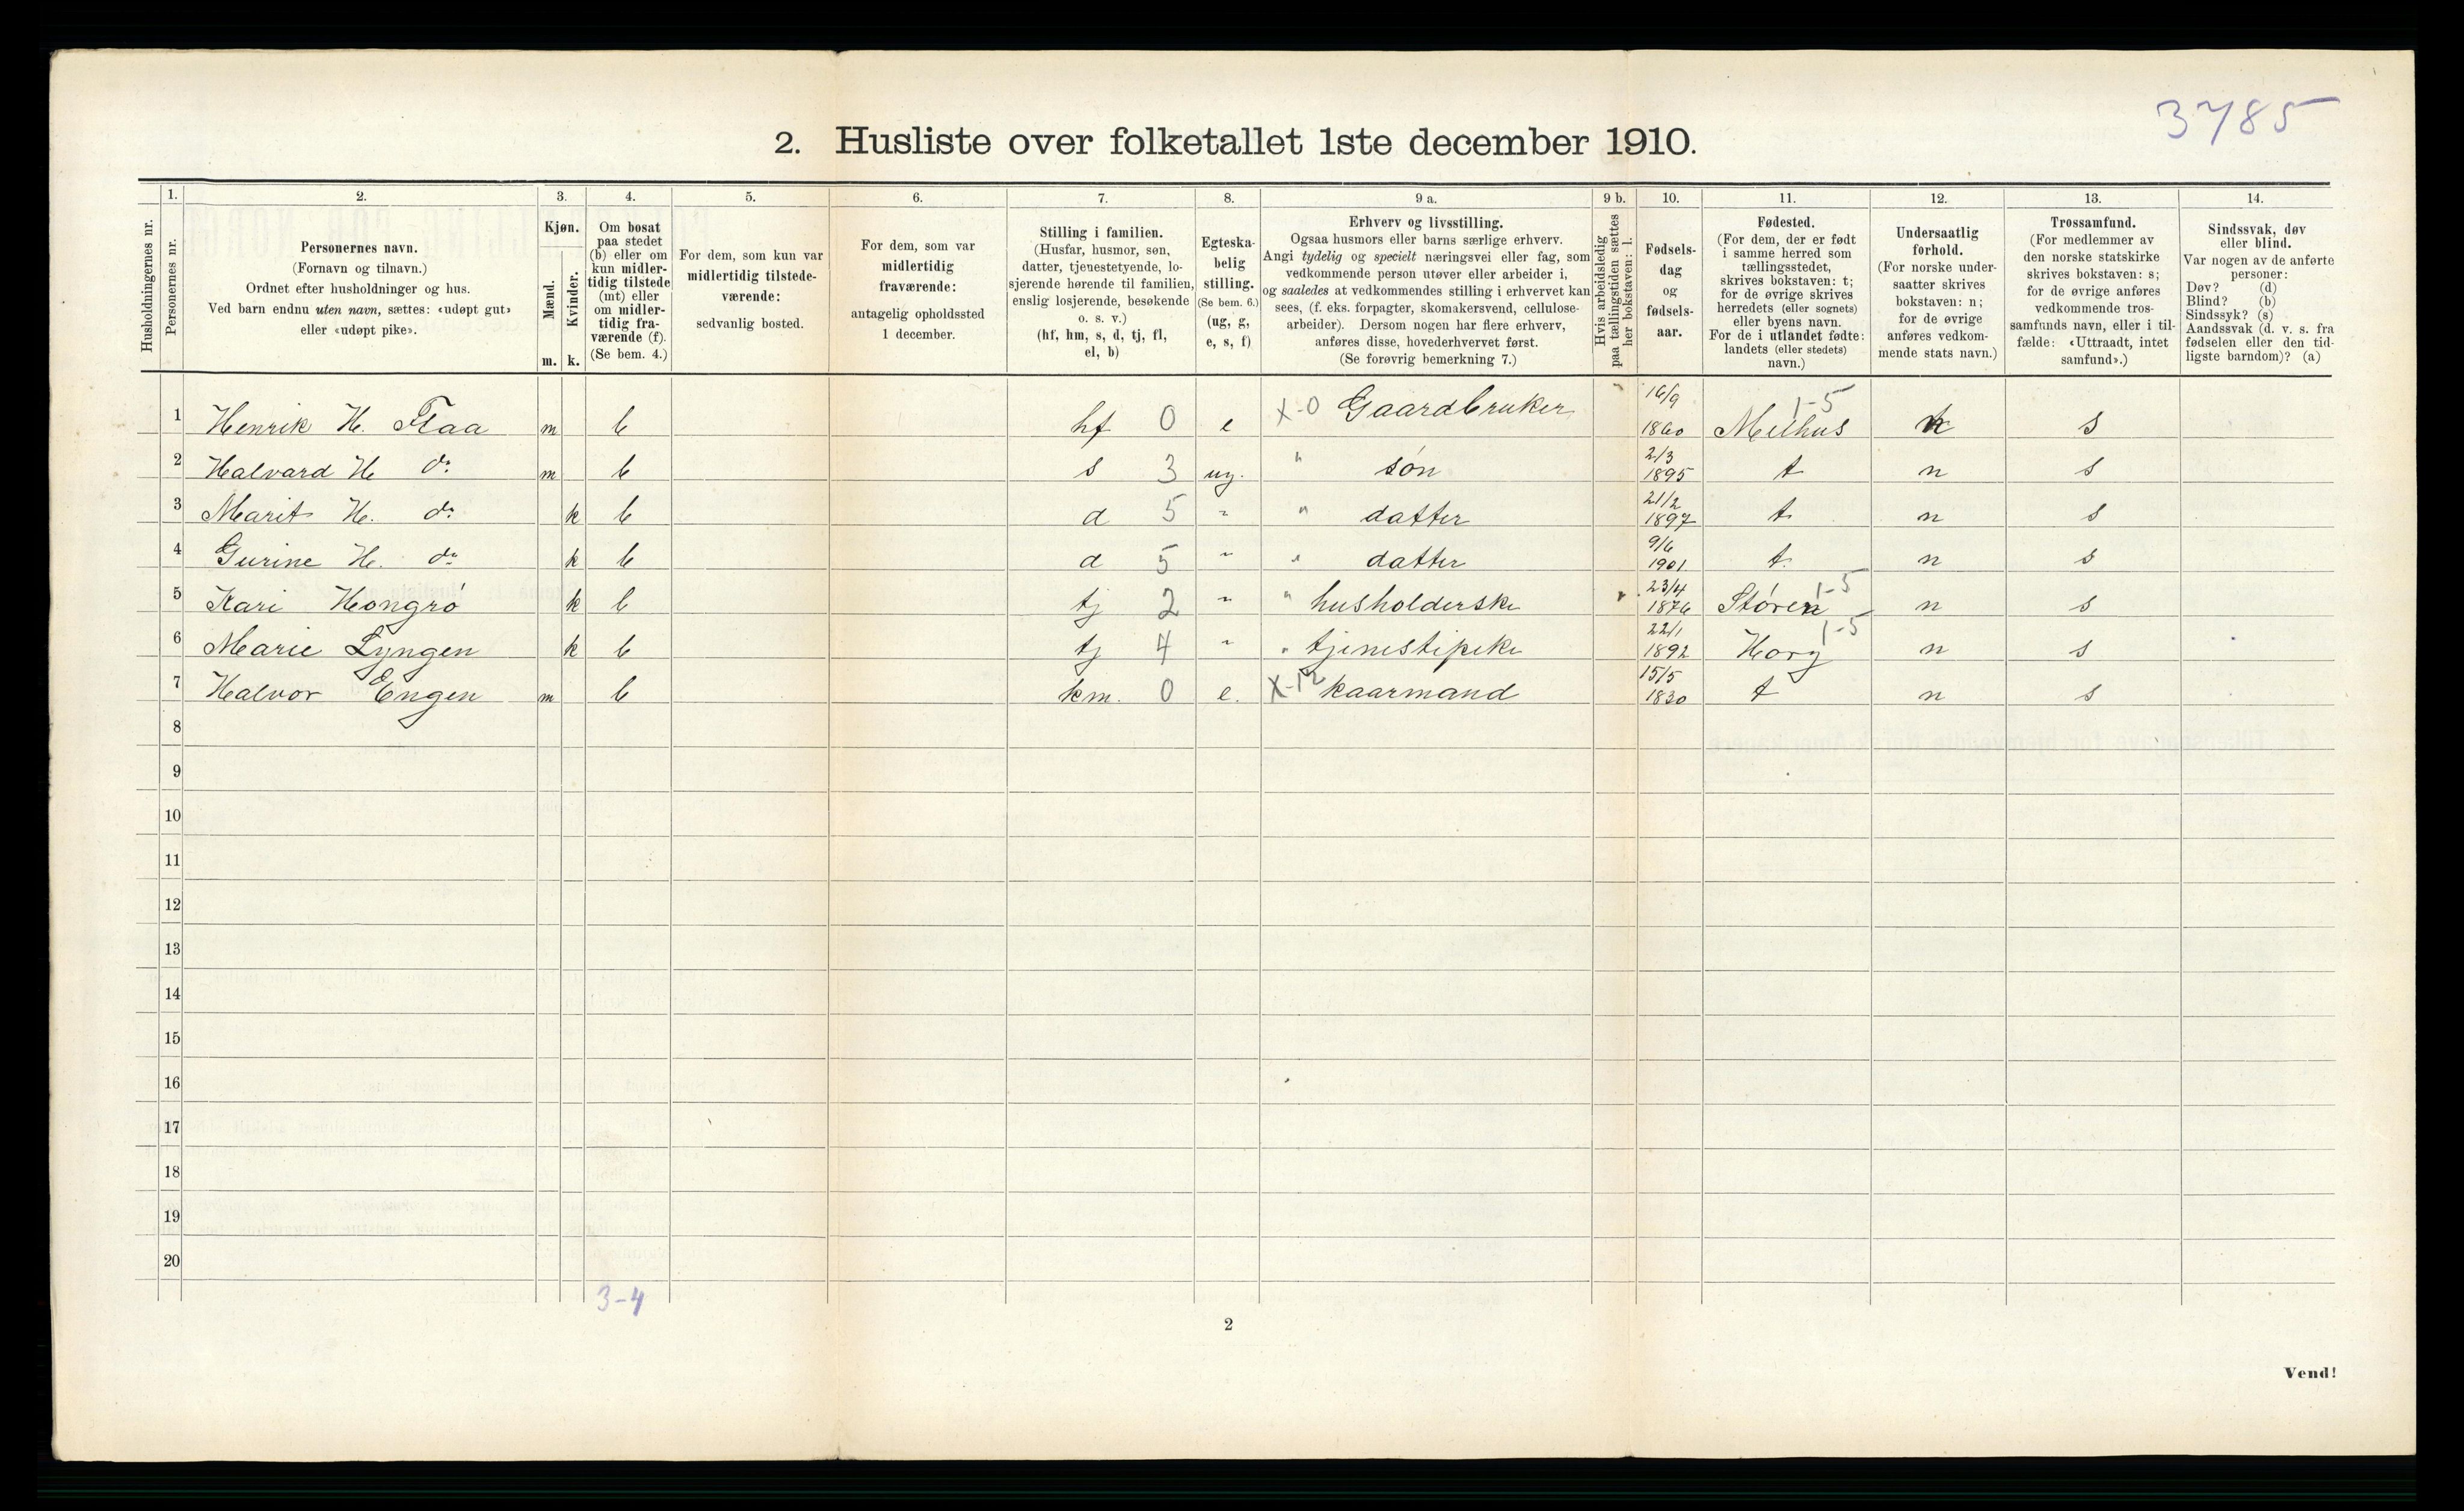 3785
2. Husliste over folketallet 1ste december 1910.
Husholdningernes nr.
1. Personernes nr.
2. Personernes navn.
(Fornavn og tilnavn.)
Ordnet efter husholdninger og hus.
Ved barn endnu uten navn, sættes: «udøpt gut»
eller «udøpt pike».
3. Kjøn.
Mænd. Kvinder.
m. k.
4. Om bosat
paa stedet
(b) eller om
kun midler-
tidig tilstede
(mt) eller
om midler-
tidig fra-
værende (f).
(Se bem. 4.)
5. For dem, som kun var
midlertidig tilstede-
værende:
sedvanlig bosted.
6. For dem, som var
midlertidig
fraværende:
antagelig opholdssted
1 december.
7. Stilling i familien.
(Husfar, husmor, søn,
datter, tjenestetyende, lo-
sjerende hørende til familien,
enslig losjerende, besøkende
o. s. v.)
(hf, hm, s, d, tj, fl,
el, b)
8. Egteska-
belig
stilling.
(Se bem. 6.)
(ug, g,
e, s, f)
9 a. Erhverv og livsstilling.
Ogsaa husmors eller barns særlige erhverv.
Angi tydelig og specielt næringsvei eller fag, som
vedkommende person utøver eller arbeider i,
og saaledes at vedkommendes stilling i erhvervet kan
sees, (f. eks. forpagter, skomakersvend, cellulose-
arbeider). Dersom nogen har flere erhverv,
anføres disse, hovederhvervet først.
(Se forøvrig bemerkning 7.)
9 b. Hvis arbeidsledig
paa tællingstiden sættes
her bokstaven: l.
10. Fødsels-
dag
og
fødsels-
aar.
11. Fødested.
(For dem, der er født
i samme herred som
tællingsstedet,
skrives bokstaven: t;
for de øvrige skrives
herredets (eller sognets)
eller byens navn.
For de i utlandet fødte:
landets (eller stedets)
navn.)
12. Undersaatlig
forhold.
(For norske under-
saatter skrives
bokstaven: n;
for de øvrige
anføres vedkom-
mende stats navn.)
13. Trossamfund.
(For medlemmer av
den norske statskirke
skrives bokstaven: s;
for de øvrige anføres
vedkommende tros-
samfunds navn, eller i til-
fælde: «Uttraadt, intet
samfund».)
14. Sindssvak, døv
eller blind.
Var nogen av de anførte
personer:
Døv? (d)
Blind? (b)
Sindssyk? (s)
Aandssvak (d. v. s. fra
fødselen eller den tid-
ligste barndom)? (a)
1 Henrik H. Flaa m b hf 0 e X-0 Gaardbruker 16/9 1860 Melhus 1-5 n s
2 Halvard H do m b s 3 ug. " søn 2/3 1895 t n s
3 Marit H. do k b d 5 " " datter 21/2 1897 t n s
4 Gurine H. do k b d 5 " " datter 9/6 1901 t n s
5 Kari Hongrø k b tj 2 " " husholderske 23/4 1876 Støren 1-5 n s
6 Marie Lyngen k b tj 4 " " tjenestipike 22/1 1892 Horg 1-5 n s
7 Halvor Engen m b km. 0 e. X-12 kaarmand 15/5 1830 t n s
8
9
10
11
12
13
14
15
16
17
18
19
20
3-4
2
Vend!